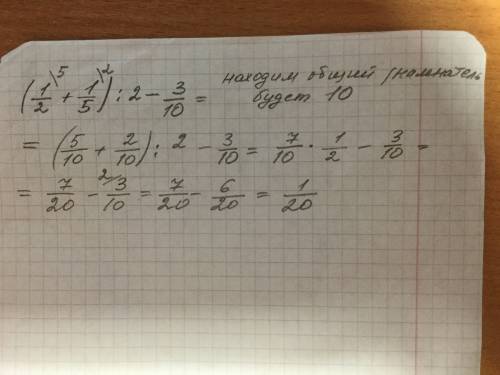 (1/2\5 + 1/5\2) : 2 − 3/10 = находим общий знаменатель
будет 10
= (5/10 + 2/10) : 2 − 3/10 = 7/10 · 1/2 − 3/10 =
= 7/20 − 2/3/10 = 7/20 − 6/20 = 1/20